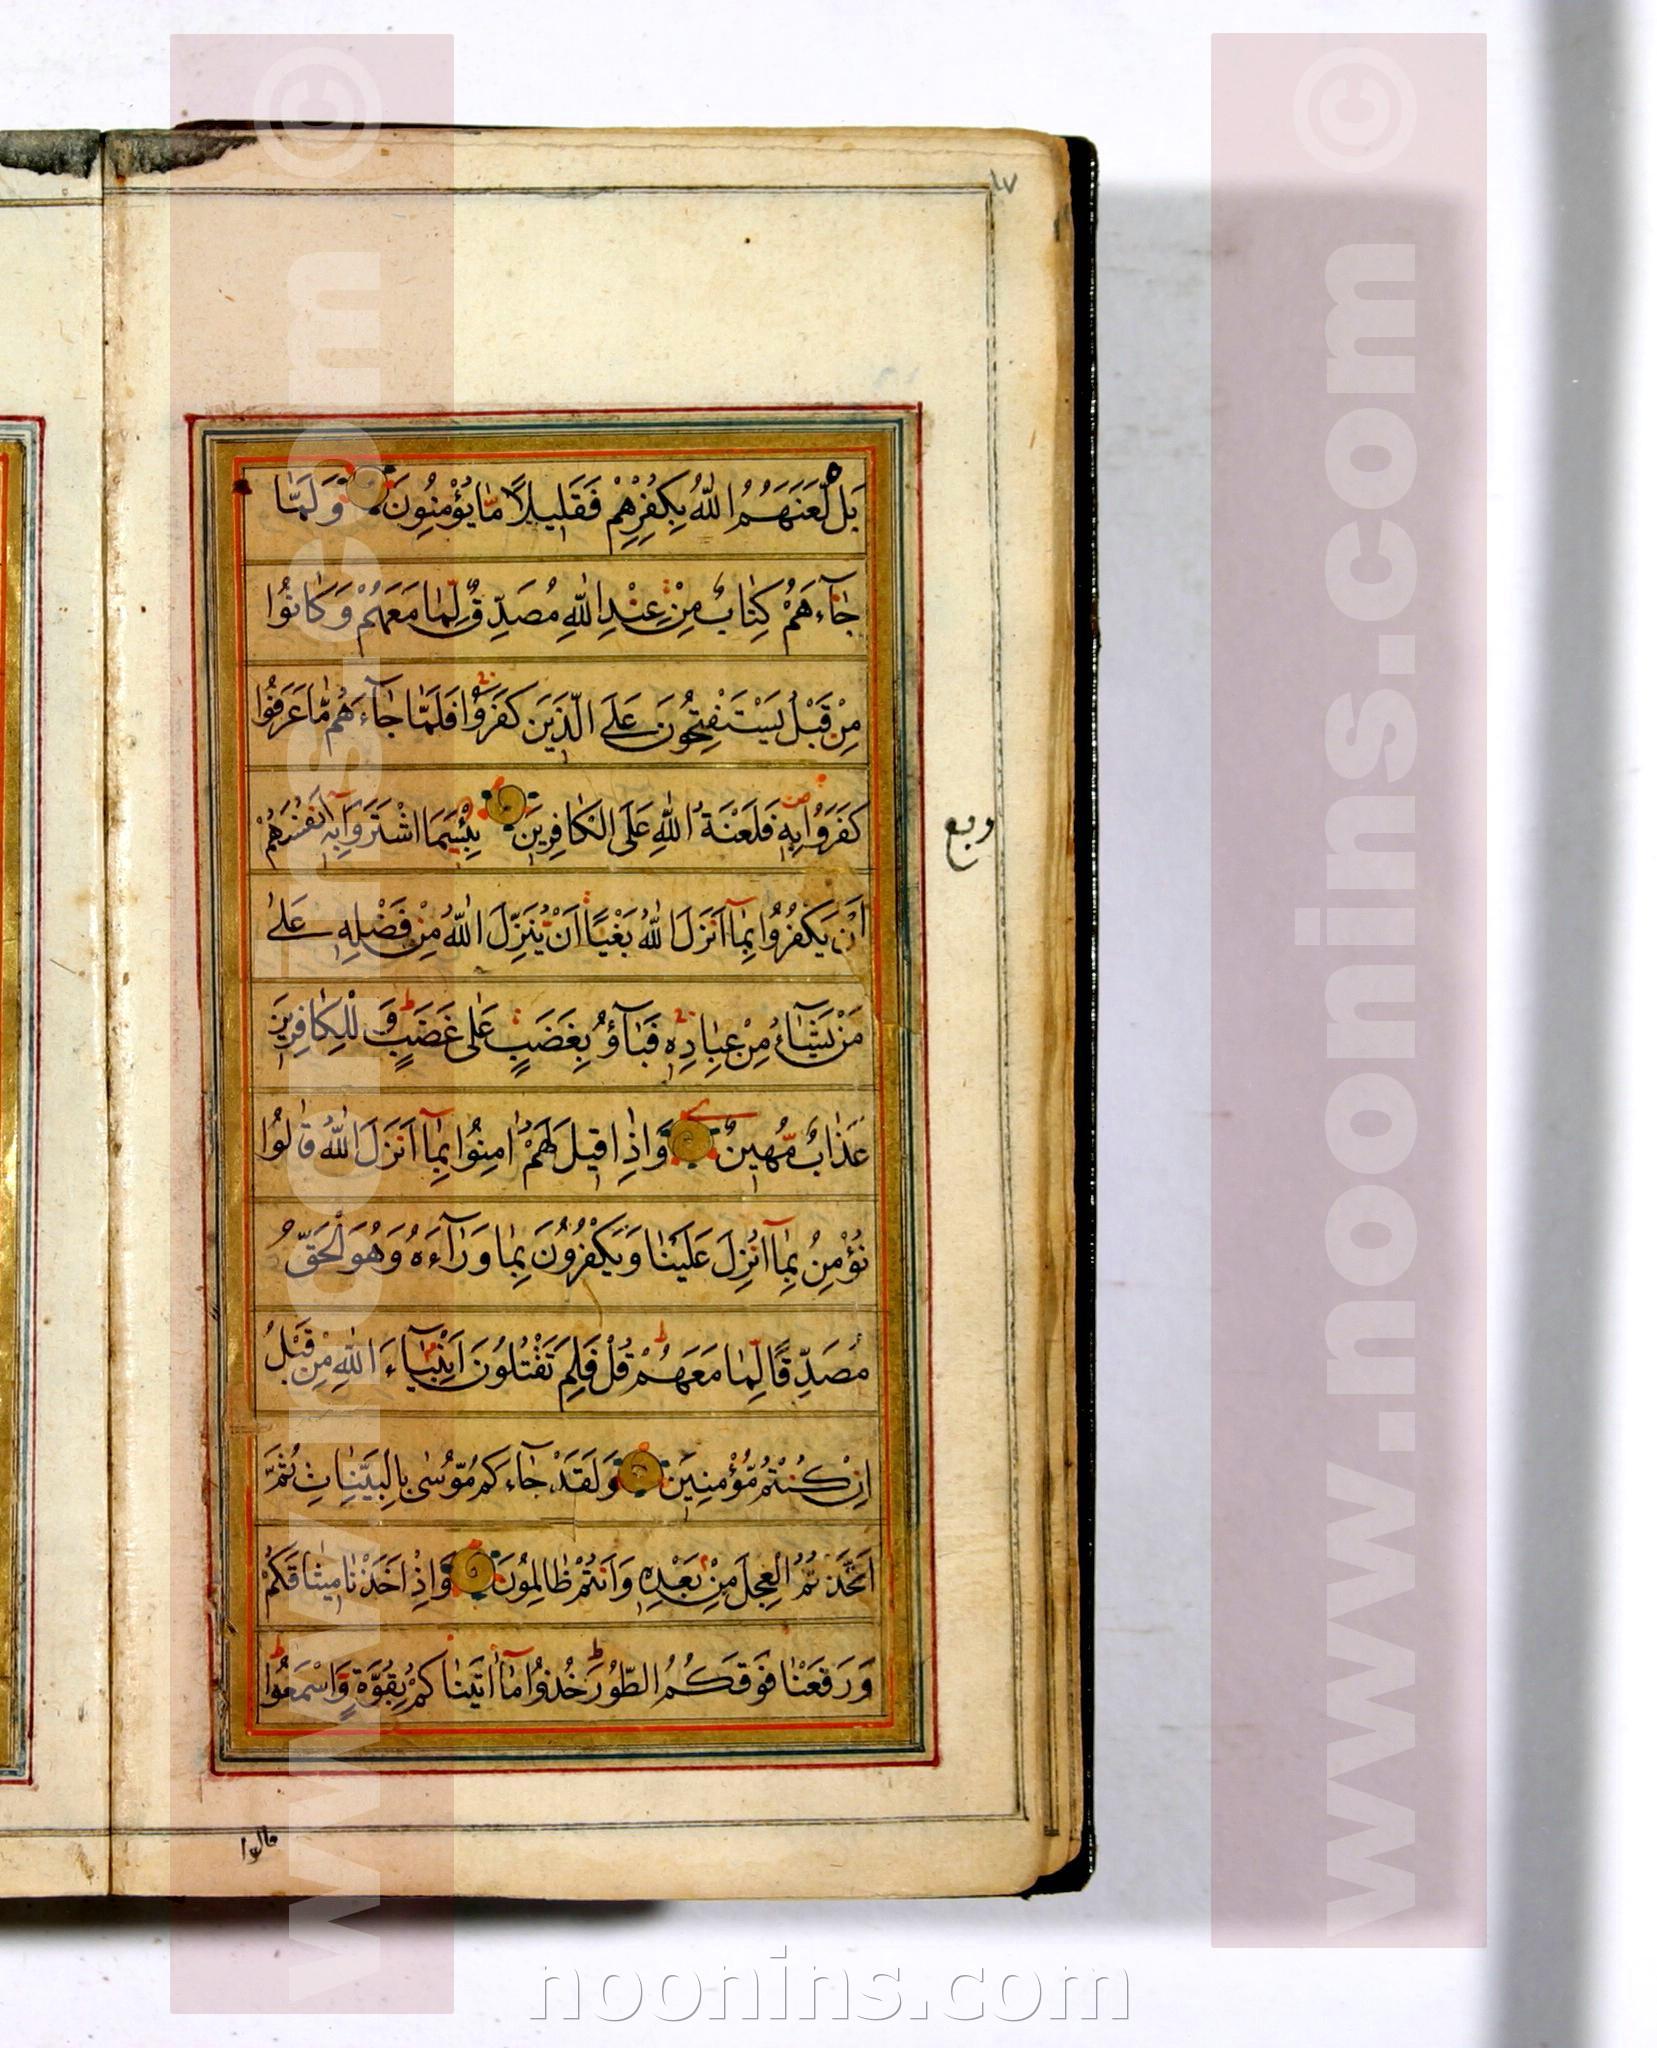 ١٧
بَل لَّعَنَهُمُ اللّٰهُ بِكُفْرِهِمْ فَقَلِيلًا مَّا يُؤْمِنُونَ وَلَمَّا
جَاۤءَهُمْ كِتَابٌ مِنْ عِنْدِ اللّٰهِ مُصَدِّقٌ لِّمَا مَعَهُمْ وَكَانُوا
مِنْ قَبْلُ يَسْتَفْتِحُونَ عَلَى الَّذِينَ كَفَرُوا فَلَمَّا جَاۤءَهُمْ مَّا عَرَفُوا
كَفَرُوا بِهٖ فَلَعْنَةُ اللّٰهِ عَلَى الْكَافِرِينَ بِئْسَمَا اشْتَرَوْا بِهٖ اَنْفُسَهُمْ
ربع
اَنْ يَكْفُرُوا بِمَاۤ اَنْزَلَ اللّٰهُ بَغْيًا اَنْ يُنَزِّلَ اللّٰهُ مِنْ فَضْلِهٖ عَلٰى
مَنْ يَشَاۤءُ مِنْ عِبَادِهٖ فَبَاۤؤُ بِغَضَبٍ عَلٰى غَضَبٍ وَ لِلْكَافِرِينَ
عَذَابٌ مُّهِينٌ وَاِذَا قِيلَ لَهُمْ اٰمِنُوا بِمَاۤ اَنْزَلَ اللّٰهُ قَالُوا
نُؤْمِنُ بِمَاۤ اُنْزِلَ عَلَيْنَا وَيَكْفُرُونَ بِمَا وَرَاۤءَهُ وَهُوَ الْحَقُّ
مُصَدِّقًا لِّمَا مَعَهُمْ قُلْ فَلِمَ تَقْتُلُونَ اَنْبِيَاۤءَ اللّٰهِ مِنْ قَبْلُ
اِنْ كُنْتُمْ مُّؤْمِنِينَ وَلَقَدْ جَاۤءَكُمْ مُّوسٰى بِالْبَيِّنَاتِ ثُمَّ
اتَّخَذْتُمُ الْعِجْلَ مِنْ بَعْدِهٖ وَاَنْتُمْ ظَالِمُونَ وَاِذْ اَخَذْنَا مِيثَاقَكُمْ
وَرَفَعْنَا فَوْقَكُمُ الطُّورَ خُذُوا مَاۤ اٰتَيْنَاكُمْ بِقُوَّةٍ وَّاسْمَعُوا
قالوا
www.noonins.com ©
www.noonins.com ©
noonins.com